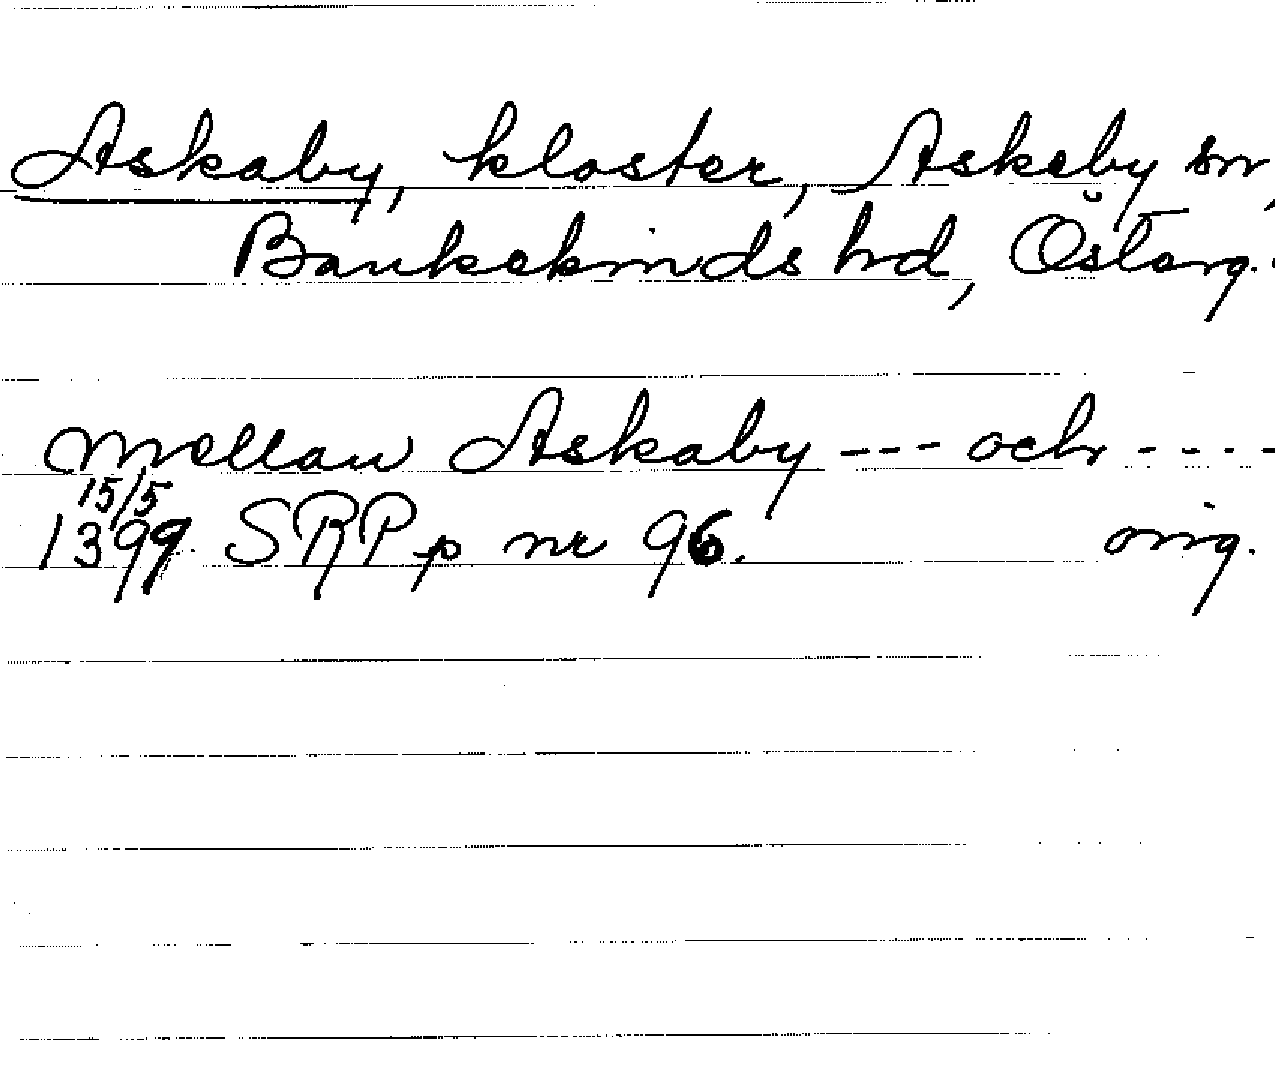 Askaby, kloster, Askeby sn,
Bankekinds hd, Österg.
mellan Askaby --- och ----
15/5
1399 SRPp nr 96. orig.